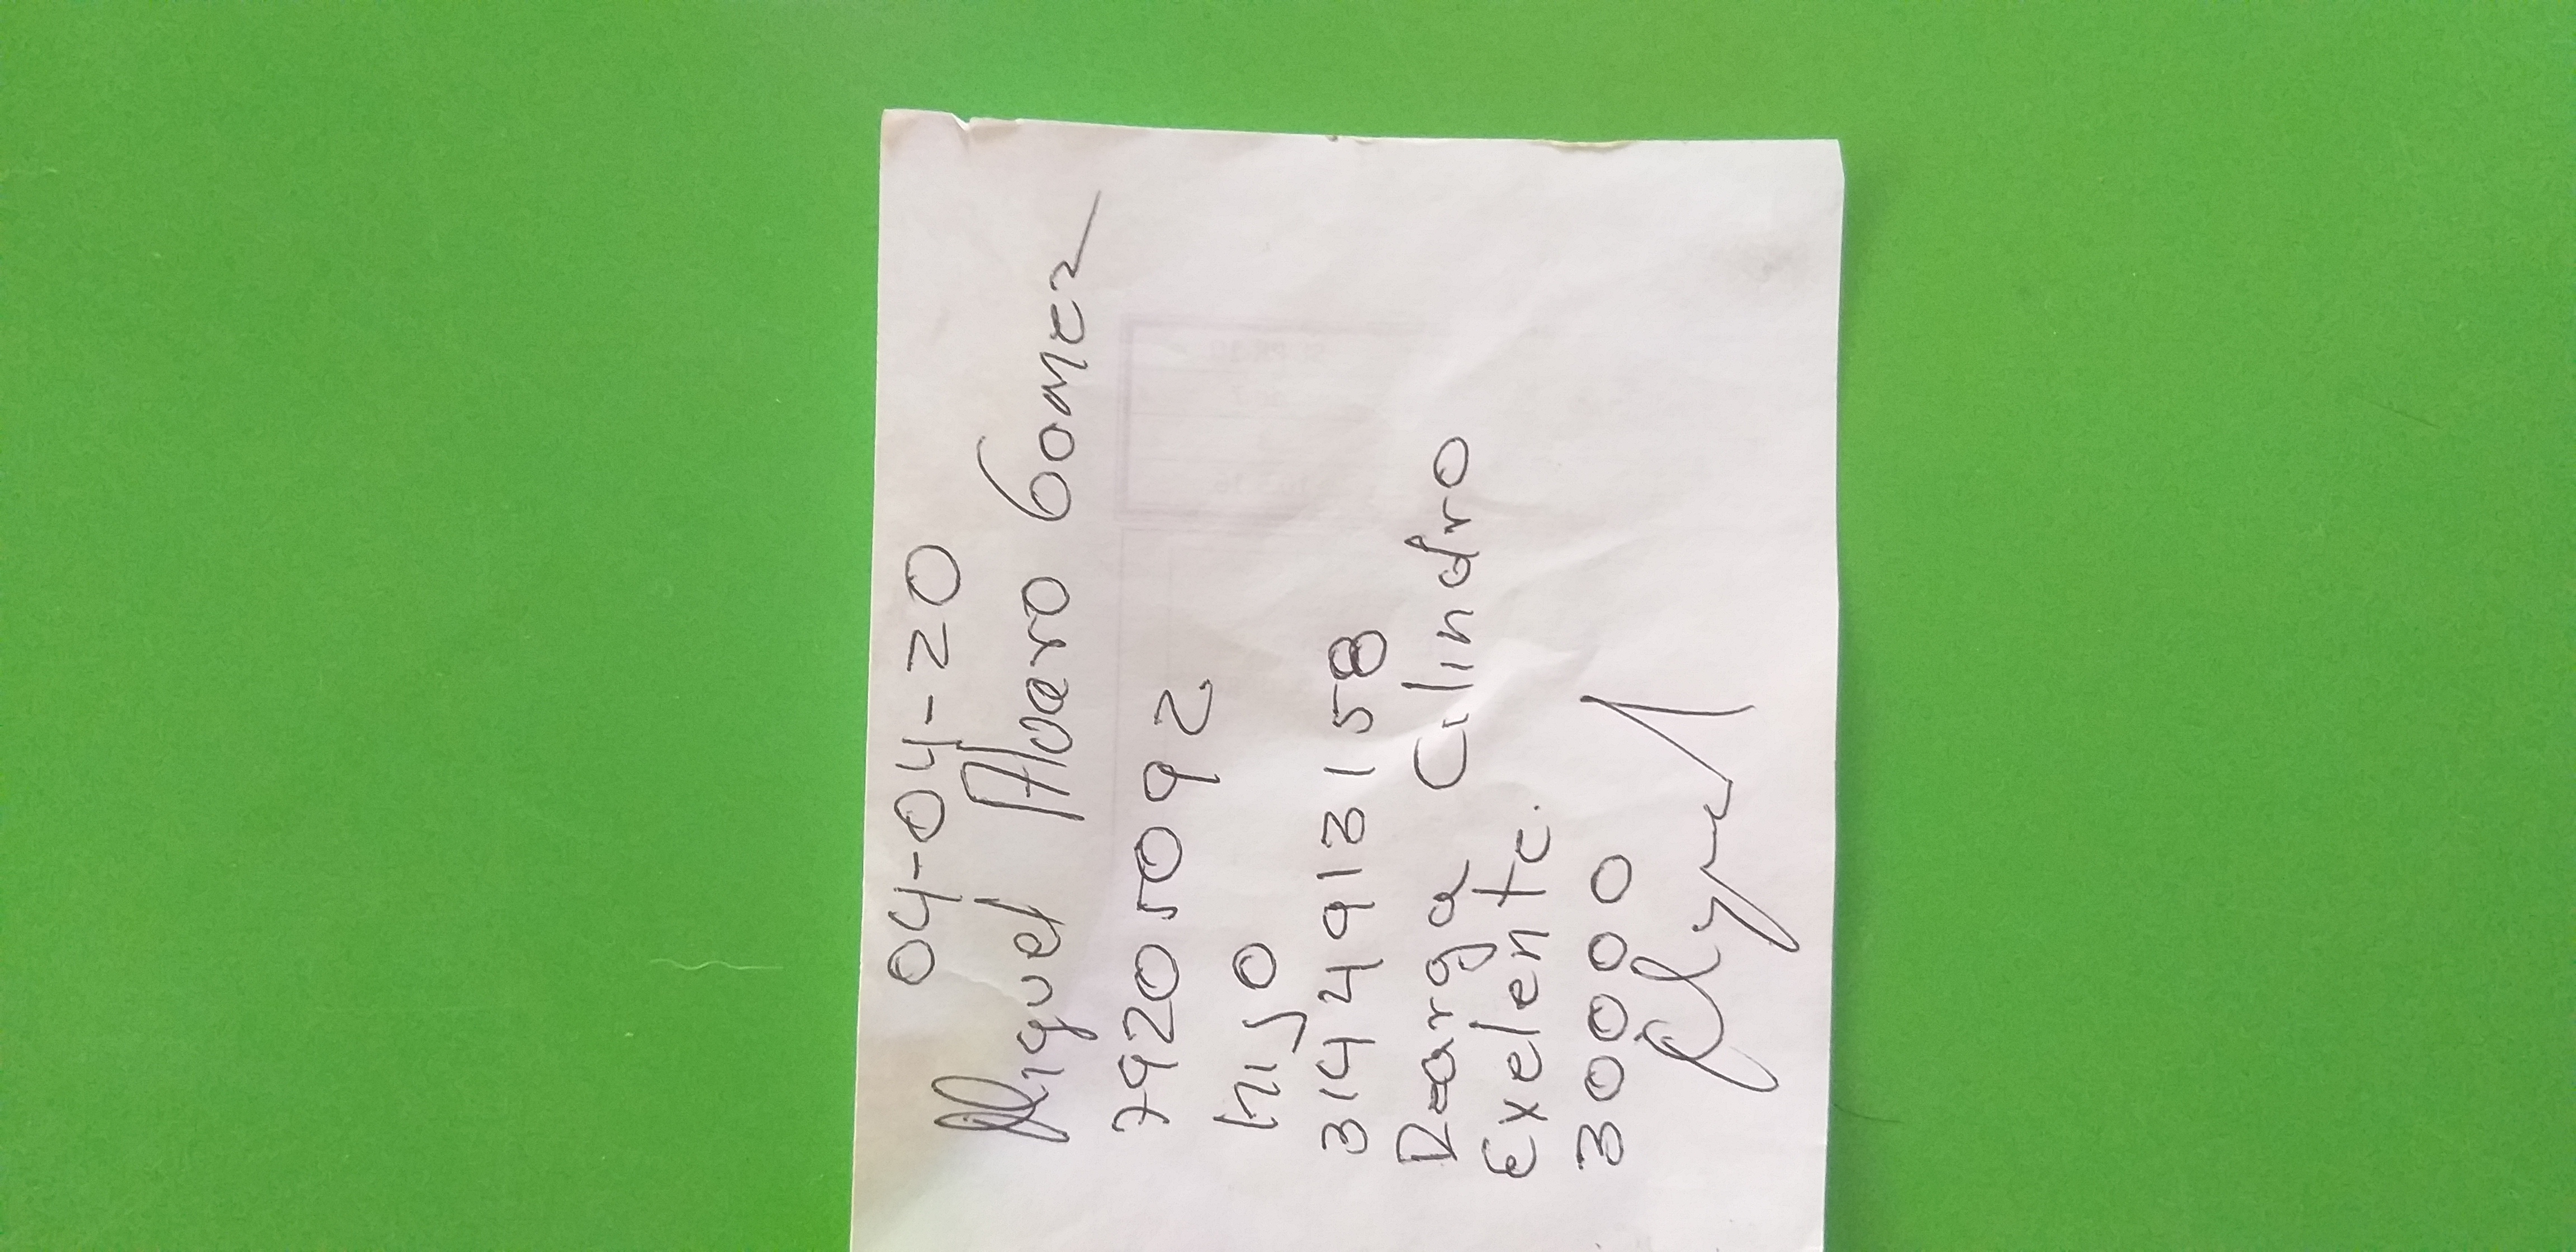 04-04-20
Miguel Alvaro Gomez
79205092
hijo
3144913158
Rearga Cilindro
Exelente.
30000